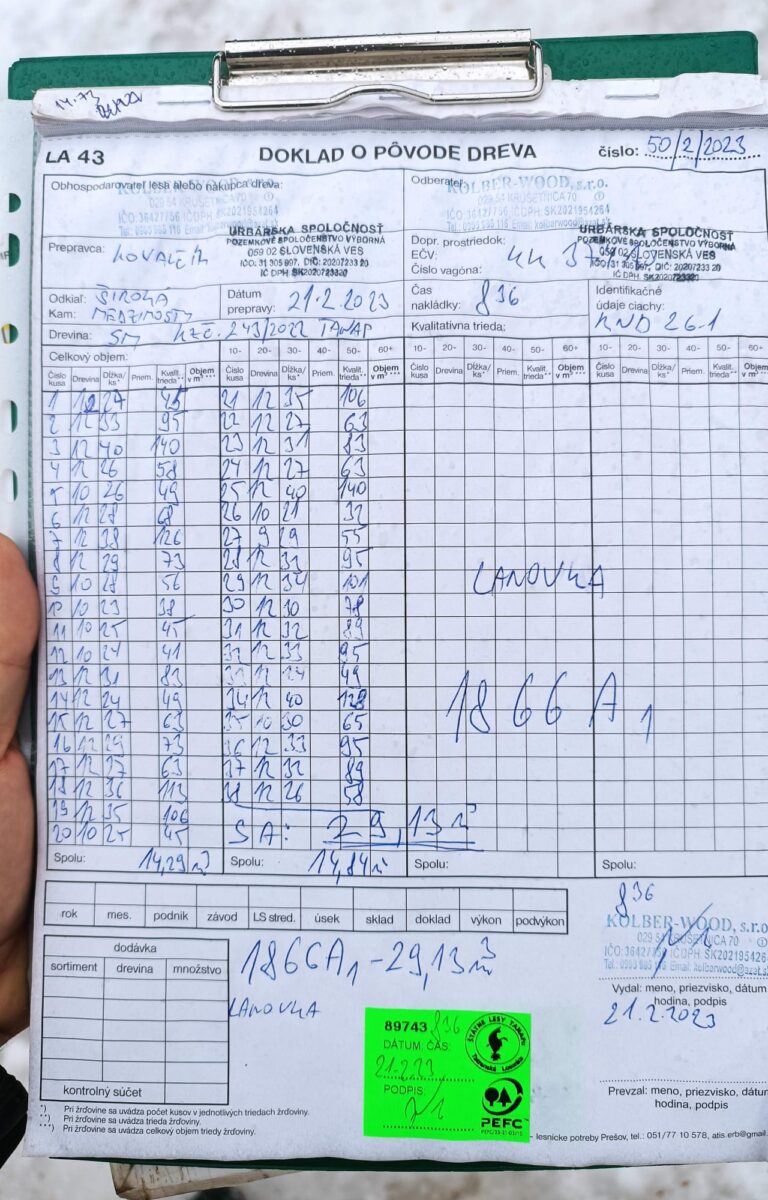 14.73
LA 43 DOKLAD O PÔVODE DREVA číslo: 50/2/2023
Obhospodarovateľ lesa alebo nákupca dreva:
KOLBER-WOOD, s.r.o.
029 54 KRUŠETNICA 70
IČO: 36427756 IČDPH: SK2021954264
URBÁRSKA SPOLOČNOSŤ
POZEMKOVÉ SPOLOČENSTVO VÝBORNÁ
059 02 SLOVENSKÁ VES
IČO: 31 305 997, DIČ: 20207233 20
IČ DPH: SK2020723320
Odberateľ:
KOLBER-WOOD, s.r.o.
029 54 KRUŠETNICA 70
IČO: 36427756 IČDPH: SK2021954264
URBÁRSKA SPOLOČNOSŤ
POZEMKOVÉ SPOLOČENSTVO VÝBORNÁ
059 02 SLOVENSKÁ VES
IČO: 31 305 997, DIČ: 20207233 20
IČ DPH: SK2020723320
Prepravca: KOVALČÍK
Dopr. prostriedok:
EČV: KK 37
Číslo vagóna:
Odkiaľ: ŠIROKA
Kam: MEDZIMOSTY
Dátum
prepravy: 21.2.2023
Čas
nakládky: 836
Identifikačné
údaje ciachy:
KND 26.1
Drevina: SM KZČ. 243/2022 TANAP
Kvalitatívna trieda:
Celkový objem: 10- 20- 30- 40- 50- 60+ 10- 20- 30- 40- 50- 60+
Číslo kusa Drevina Dĺžka/ks* Priem. Kvalit. trieda** Objem v m³*** Číslo kusa Drevina Dĺžka/ks* Priem. Kvalit. trieda** Objem v m³*** Číslo kusa Drevina Dĺžka/ks* Priem. Kvalit. trieda** Objem v m³*** Číslo kusa Drevina Dĺžka/ks* Priem. Kvalit. trieda** Objem v m³***
1 12 27 45 21 12 35 106
2 12 33 95 22 12 27 63
3 12 40 140 23 12 31 83
4 12 26 58 24 12 27 63
5 10 26 49 25 12 40 140
6 12 28 68 26 10 21 32
7 12 38 126 27 9 29 55
8 12 29 73 28 12 33 95
9 10 28 56 29 12 34 101
10 10 23 38 30 12 30 78
11 10 25 45 31 12 32 89
12 10 24 41 32 12 33 95
13 12 31 83 33 12 24 49
14 12 24 49 34 12 40 128
15 12 27 63 35 10 30 65
16 12 29 73 36 12 33 95
17 12 27 63 37 12 32 89
18 12 36 113 38 12 26 58
19 12 35 106
20 10 25 45 SA: 29,13 m³
LANOVKA
1866 A1
Spolu: 14,29 m³ Spolu: 14,84 m³ Spolu: Spolu:
rok mes. podnik závod LS stred. úsek sklad doklad výkon podvýkon
836
KOLBER-WOOD, s.r.o.
029 54 KRUŠETNICA 70
Vydal: meno, priezvisko, dátum
hodina, podpis
21.2.2023
dodávka
sortiment drevina množstvo
kontrolný súčet
1866A1 - 29,13 m³
LANOVKA
89743 836
DÁTUM: ČAS:
21.2.23
PODPIS:
ŠTÁTNE LESY TANAPU
Tatranská Lomnica
PEFC
Prevzal: meno, priezvisko, dátum
hodina, podpis
*) Pri žrďovine sa uvádza počet kusov v jednotlivých triedach žrďoviny.
**) Pri žrďovine sa uvádza trieda žrďoviny.
***) Pri žrďovine sa uvádza celkový objem triedy žrďoviny.
- lesnícke potreby Prešov, tel.: 051/77 10 578, atis.erb@gmail.